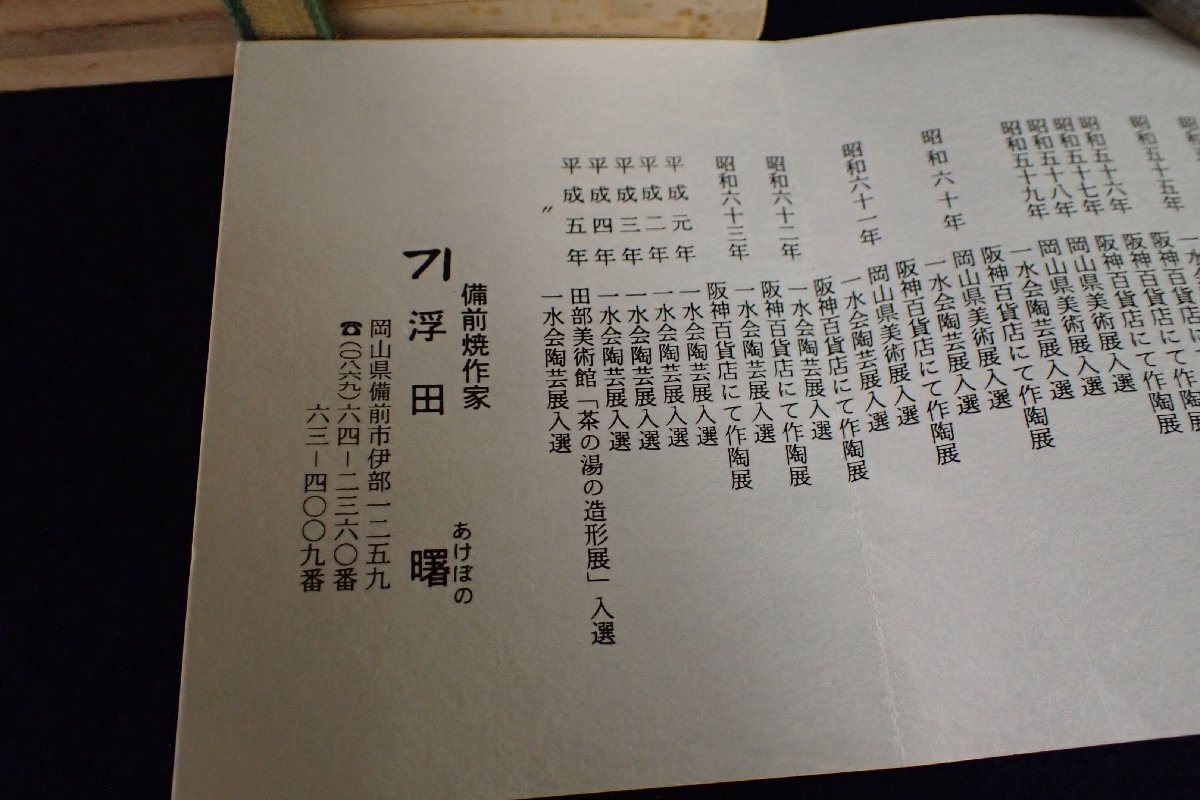 昭和五十五年 一水会陶芸展
阪神百貨店にて作陶展
昭和五十六年 阪神百貨店にて作陶展
昭和五十七年 岡山県美術展入選
昭和五十八年 岡山県美術展入選
昭和五十九年 一水会陶芸展入選
阪神百貨店にて作陶展
昭和六十年 岡山県美術展入選
一水会陶芸展入選
阪神百貨店にて作陶展
昭和六十一年 岡山県美術展入選
一水会陶芸展入選
阪神百貨店にて作陶展
昭和六十二年 一水会陶芸展入選
阪神百貨店にて作陶展
昭和六十三年 一水会陶芸展入選
阪神百貨店にて作陶展
平成元年 一水会陶芸展入選
平成二年 一水会陶芸展入選
平成三年 一水会陶芸展入選
平成四年 一水会陶芸展入選
平成五年 田部美術館「茶の湯の造形展」入選
〃 一水会陶芸展入選
備前焼作家
浮田 曙 あけぼの
岡山県備前市伊部一二五九
☎(〇八六九)六四−二三六〇番
六三−四〇〇九番